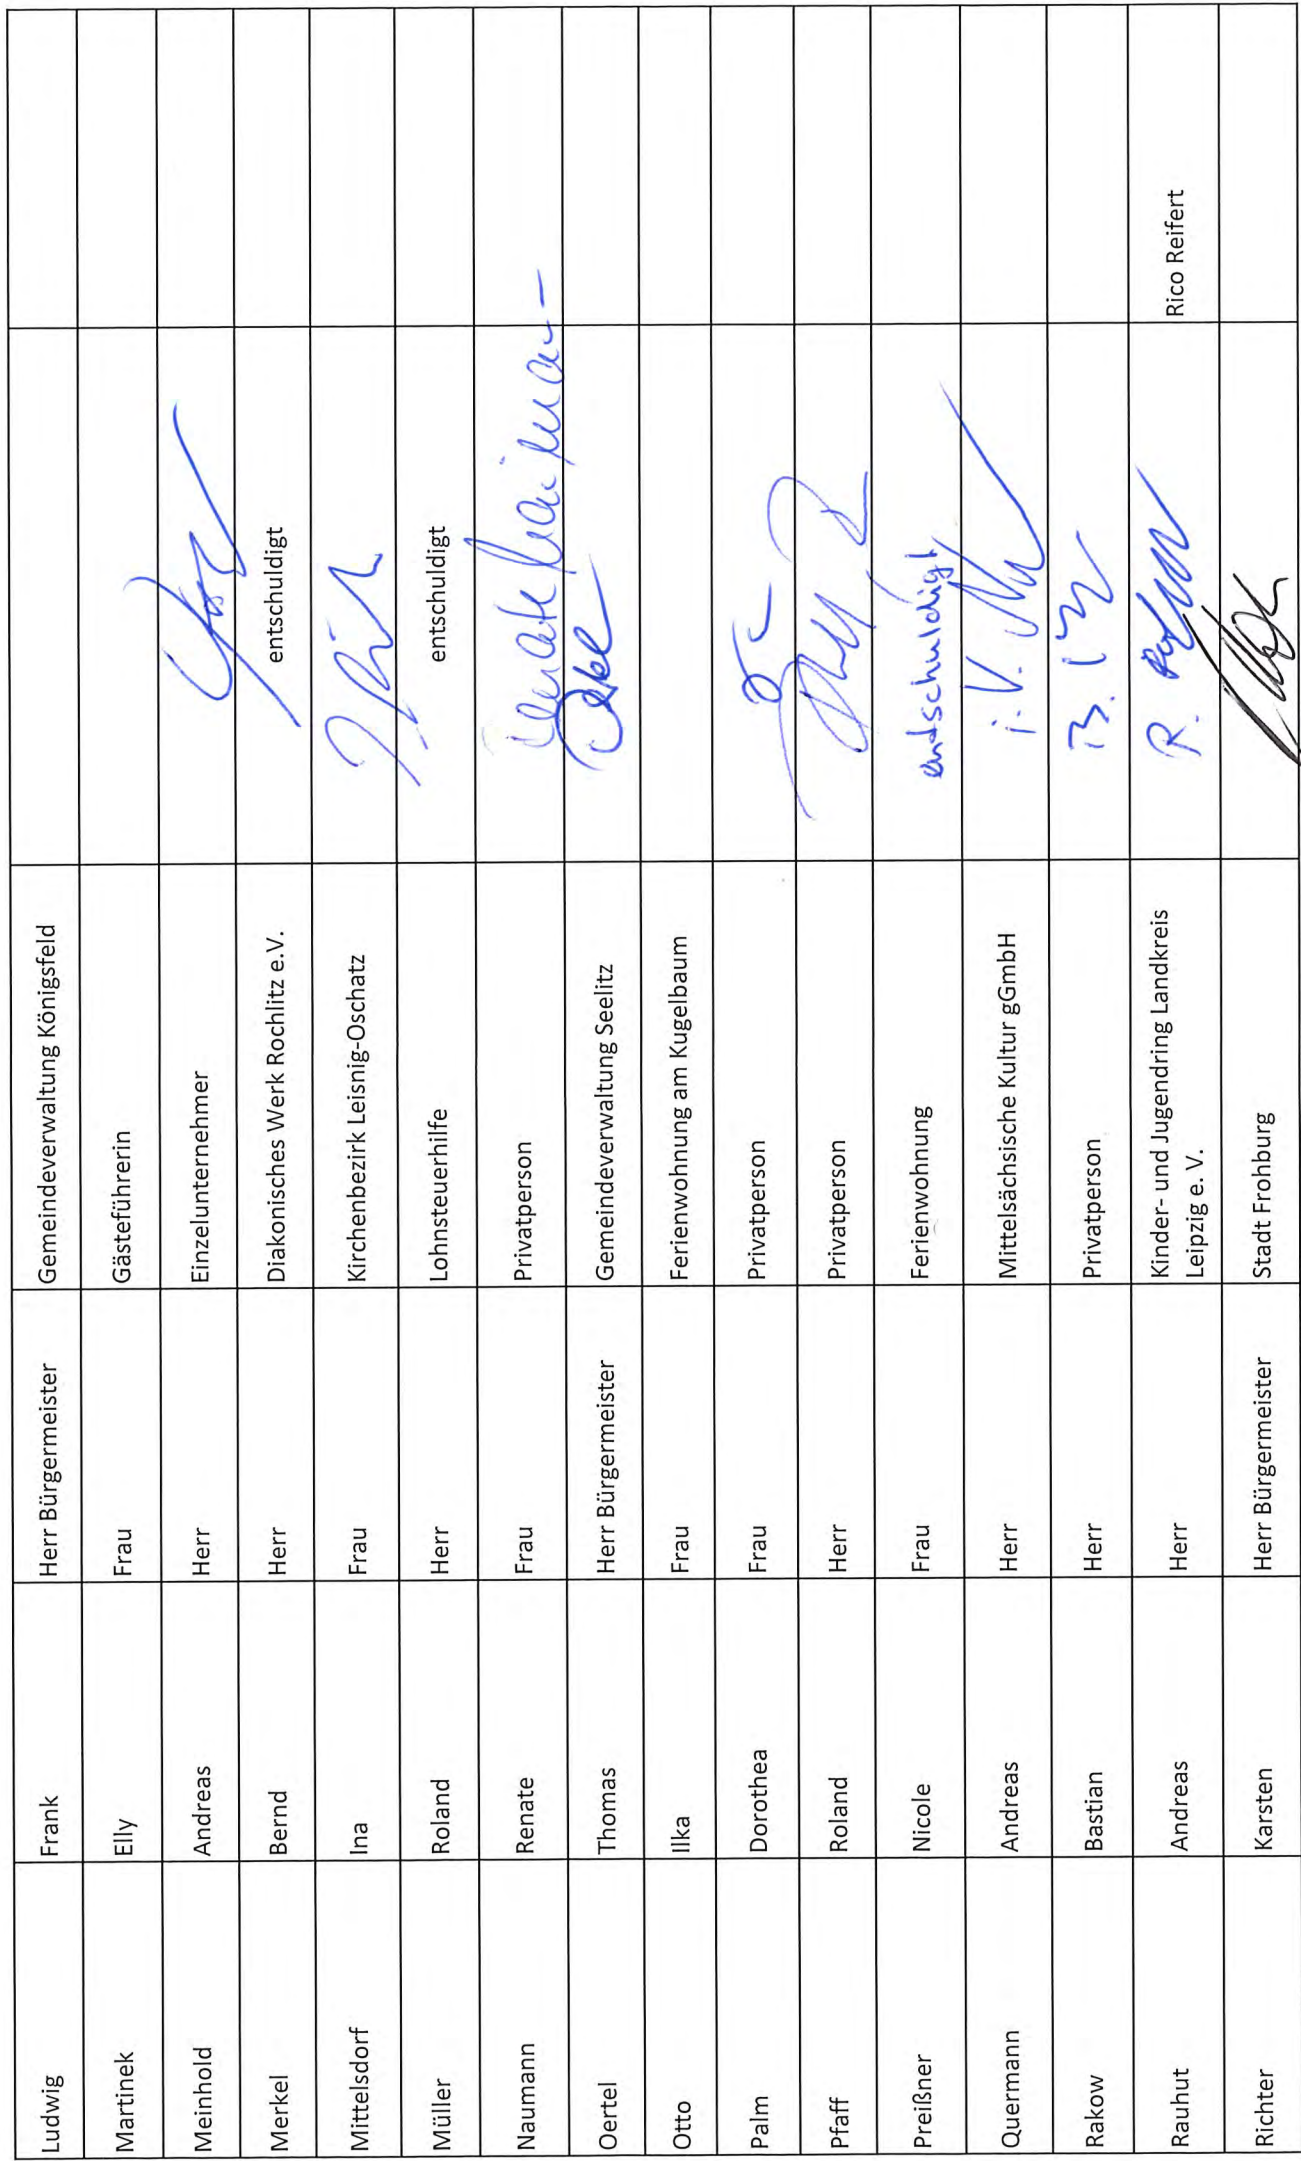 Ludwig Frank Herr Bürgermeister Gemeindeverwaltung Königsfeld
Martinek Elly Frau Gästeführerin
Meinhold Andreas Herr Einzelunternehmer
Merkel Bernd Herr Diakonisches Werk Rochlitz e.V. entschuldigt
Mittelsdorf Ina Frau Kirchenbezirk Leisnig-Oschatz
Müller Roland Herr Lohnsteuerhilfe entschuldigt
Naumann Renate Frau Privatperson
Oertel Thomas Herr Bürgermeister Gemeindeverwaltung Seelitz
Otto Ilka Frau Ferienwohnung am Kugelbaum
Palm Dorothea Frau Privatperson
Pfaff Roland Herr Privatperson
Preißner Nicole Frau Ferienwohnung entschuldigt
Quermann Andreas Herr Mittelsächsische Kultur gGmbH i. V.
Rakow Bastian Herr Privatperson B.
Rauhut Andreas Herr Kinder- und Jugendring Landkreis R. Rico Reifert
Leipzig e. V.
Richter Karsten Herr Bürgermeister Stadt Frohburg